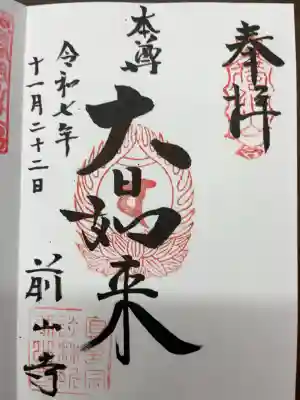 奉拝
本尊
大日如来
令和七年
十一月二十二日
前山寺